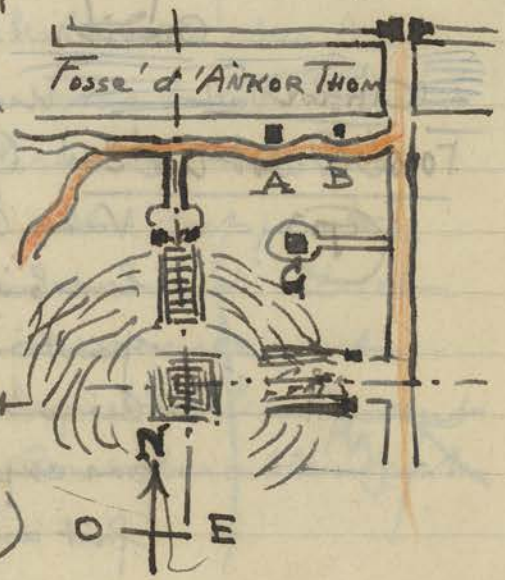 Fossé d'ANKOR THOM
A B
G
N
O E